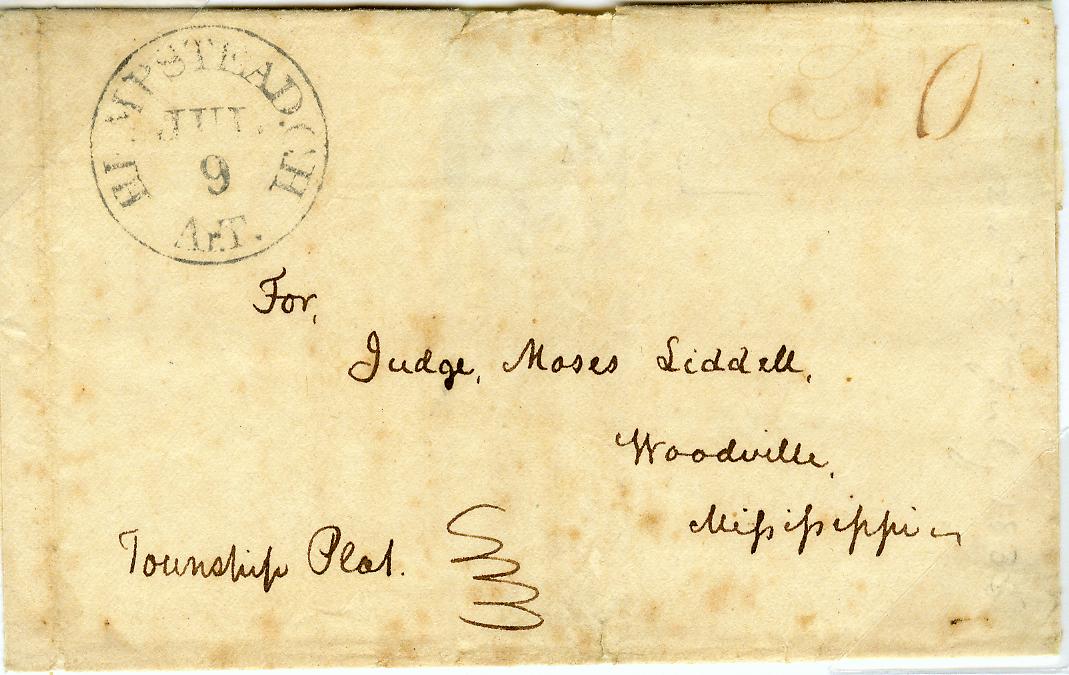 HEMPSTEAD. CH
JUL.
9
Ar.T.
For,
Judge, Moses Liddell,
Woodville,
Missisippi
Township Plat.